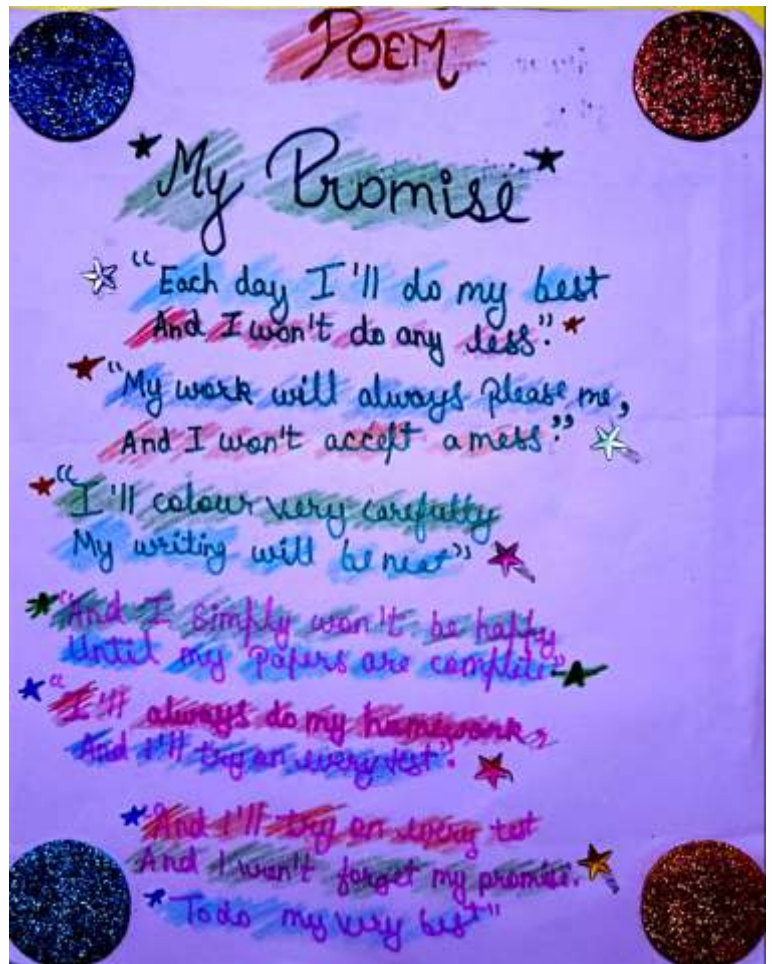 POEM
"My Promise
"Each day I'll do my best
And I won't do any less".
"My work will always please me,
And I won't accept a mess."
"I'll colour very carefully
My writing will be neat"
"And I simply won't be happy
Until my papers are complete"
"I'll always do my homework,
And I'll try on every test".
And I'll try on every test
And I won't forget my promise.
To do my very best"